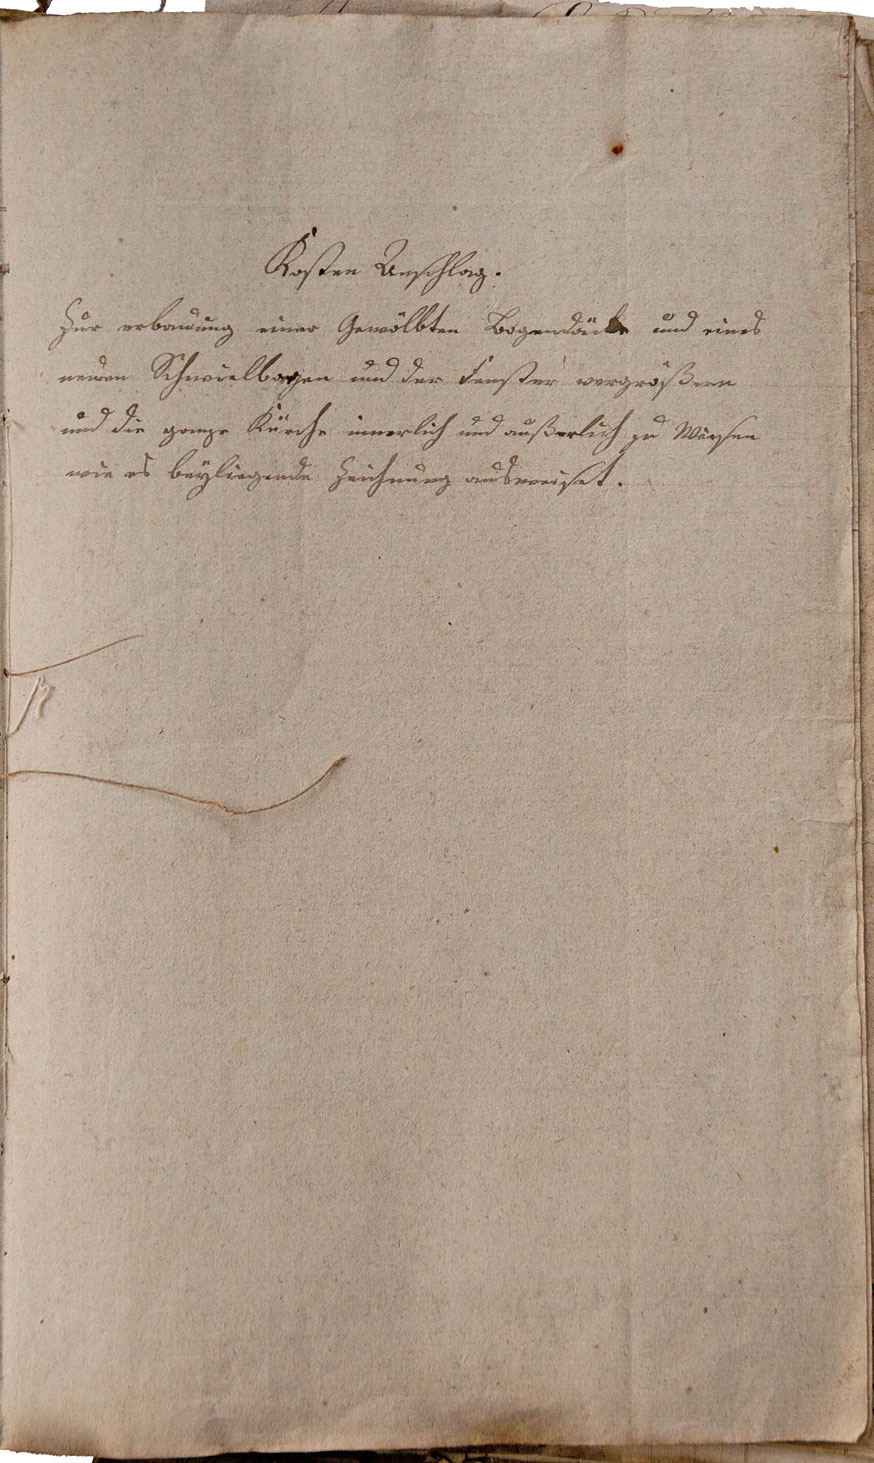 Kosten Anschlag.
Zur erbauung einer Gewölbten Bogendäcke und eines
neuen Schwielbogen und der Fenster vergrößern
und die ganze Kürche innerlich und außerlich zu Weisen
wie es beÿliegende Zeichnung ausweiset.